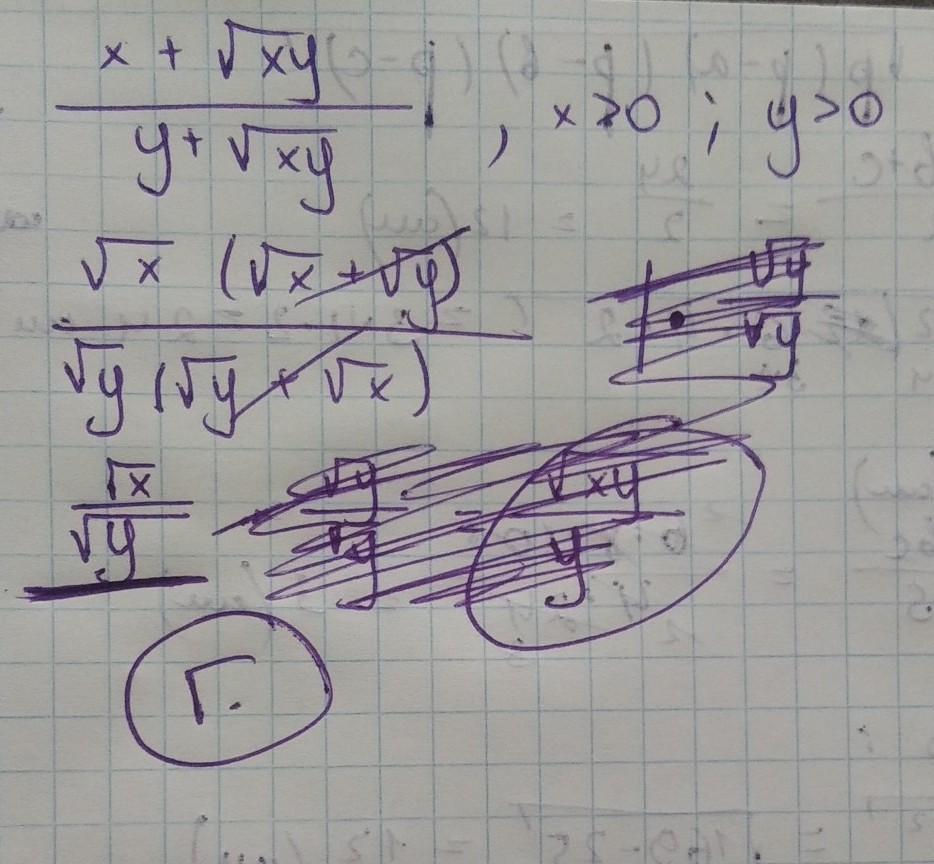 x + √xy
y + √xy , x > 0 ; y > 0
√x (√x + √y)
√y (√y + √x)
√y
√y
√x
√y
√y
√y
=
√xy
y
Г.